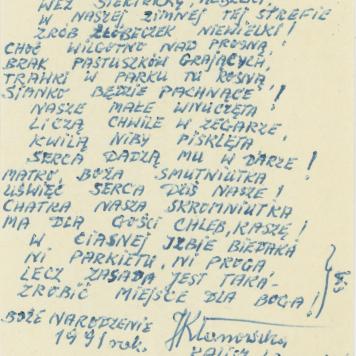 WEŹ SIEKIERKĘ, HEBELKI,
W NASZEJ ZIMNEJ TEJ STREFIE
ZRÓB ŻŁÓBECZEK NIEWIELKI!
CHOĆ WILGOTNO NAD PROSNĄ,
BRAK PASTUSZKÓW GRAJĄCYCH,
TRAWKI W PARKU TU ROSNĄ
SIANKO BĘDZIE PACHNĄCE!
NASZE MAŁE WNUCZĘTA
LICZĄ CHWILE W ZEGARZE
KWILĄ NIBY PISKLĘTA
SERCA DADZĄ MU W DARZE!
MATKO, BOŻA SMUTNIUTKA
UŚWIĘĆ SERCA DZIŚ NASZE!
CHATKA NASZA SKROMNIUTKA
MA DLA GOŚCI CHLEB, KASZĘ!
W CIASNEJ IZBIE BIEDAKA
NI PARKIETU, NI PROGA
LECZ ZASADA JEST TAKA-
ZROBIĆ MIEJSCE DLA BOGA!
BOŻE NARODZENIE
1991 rok.
KALISZ